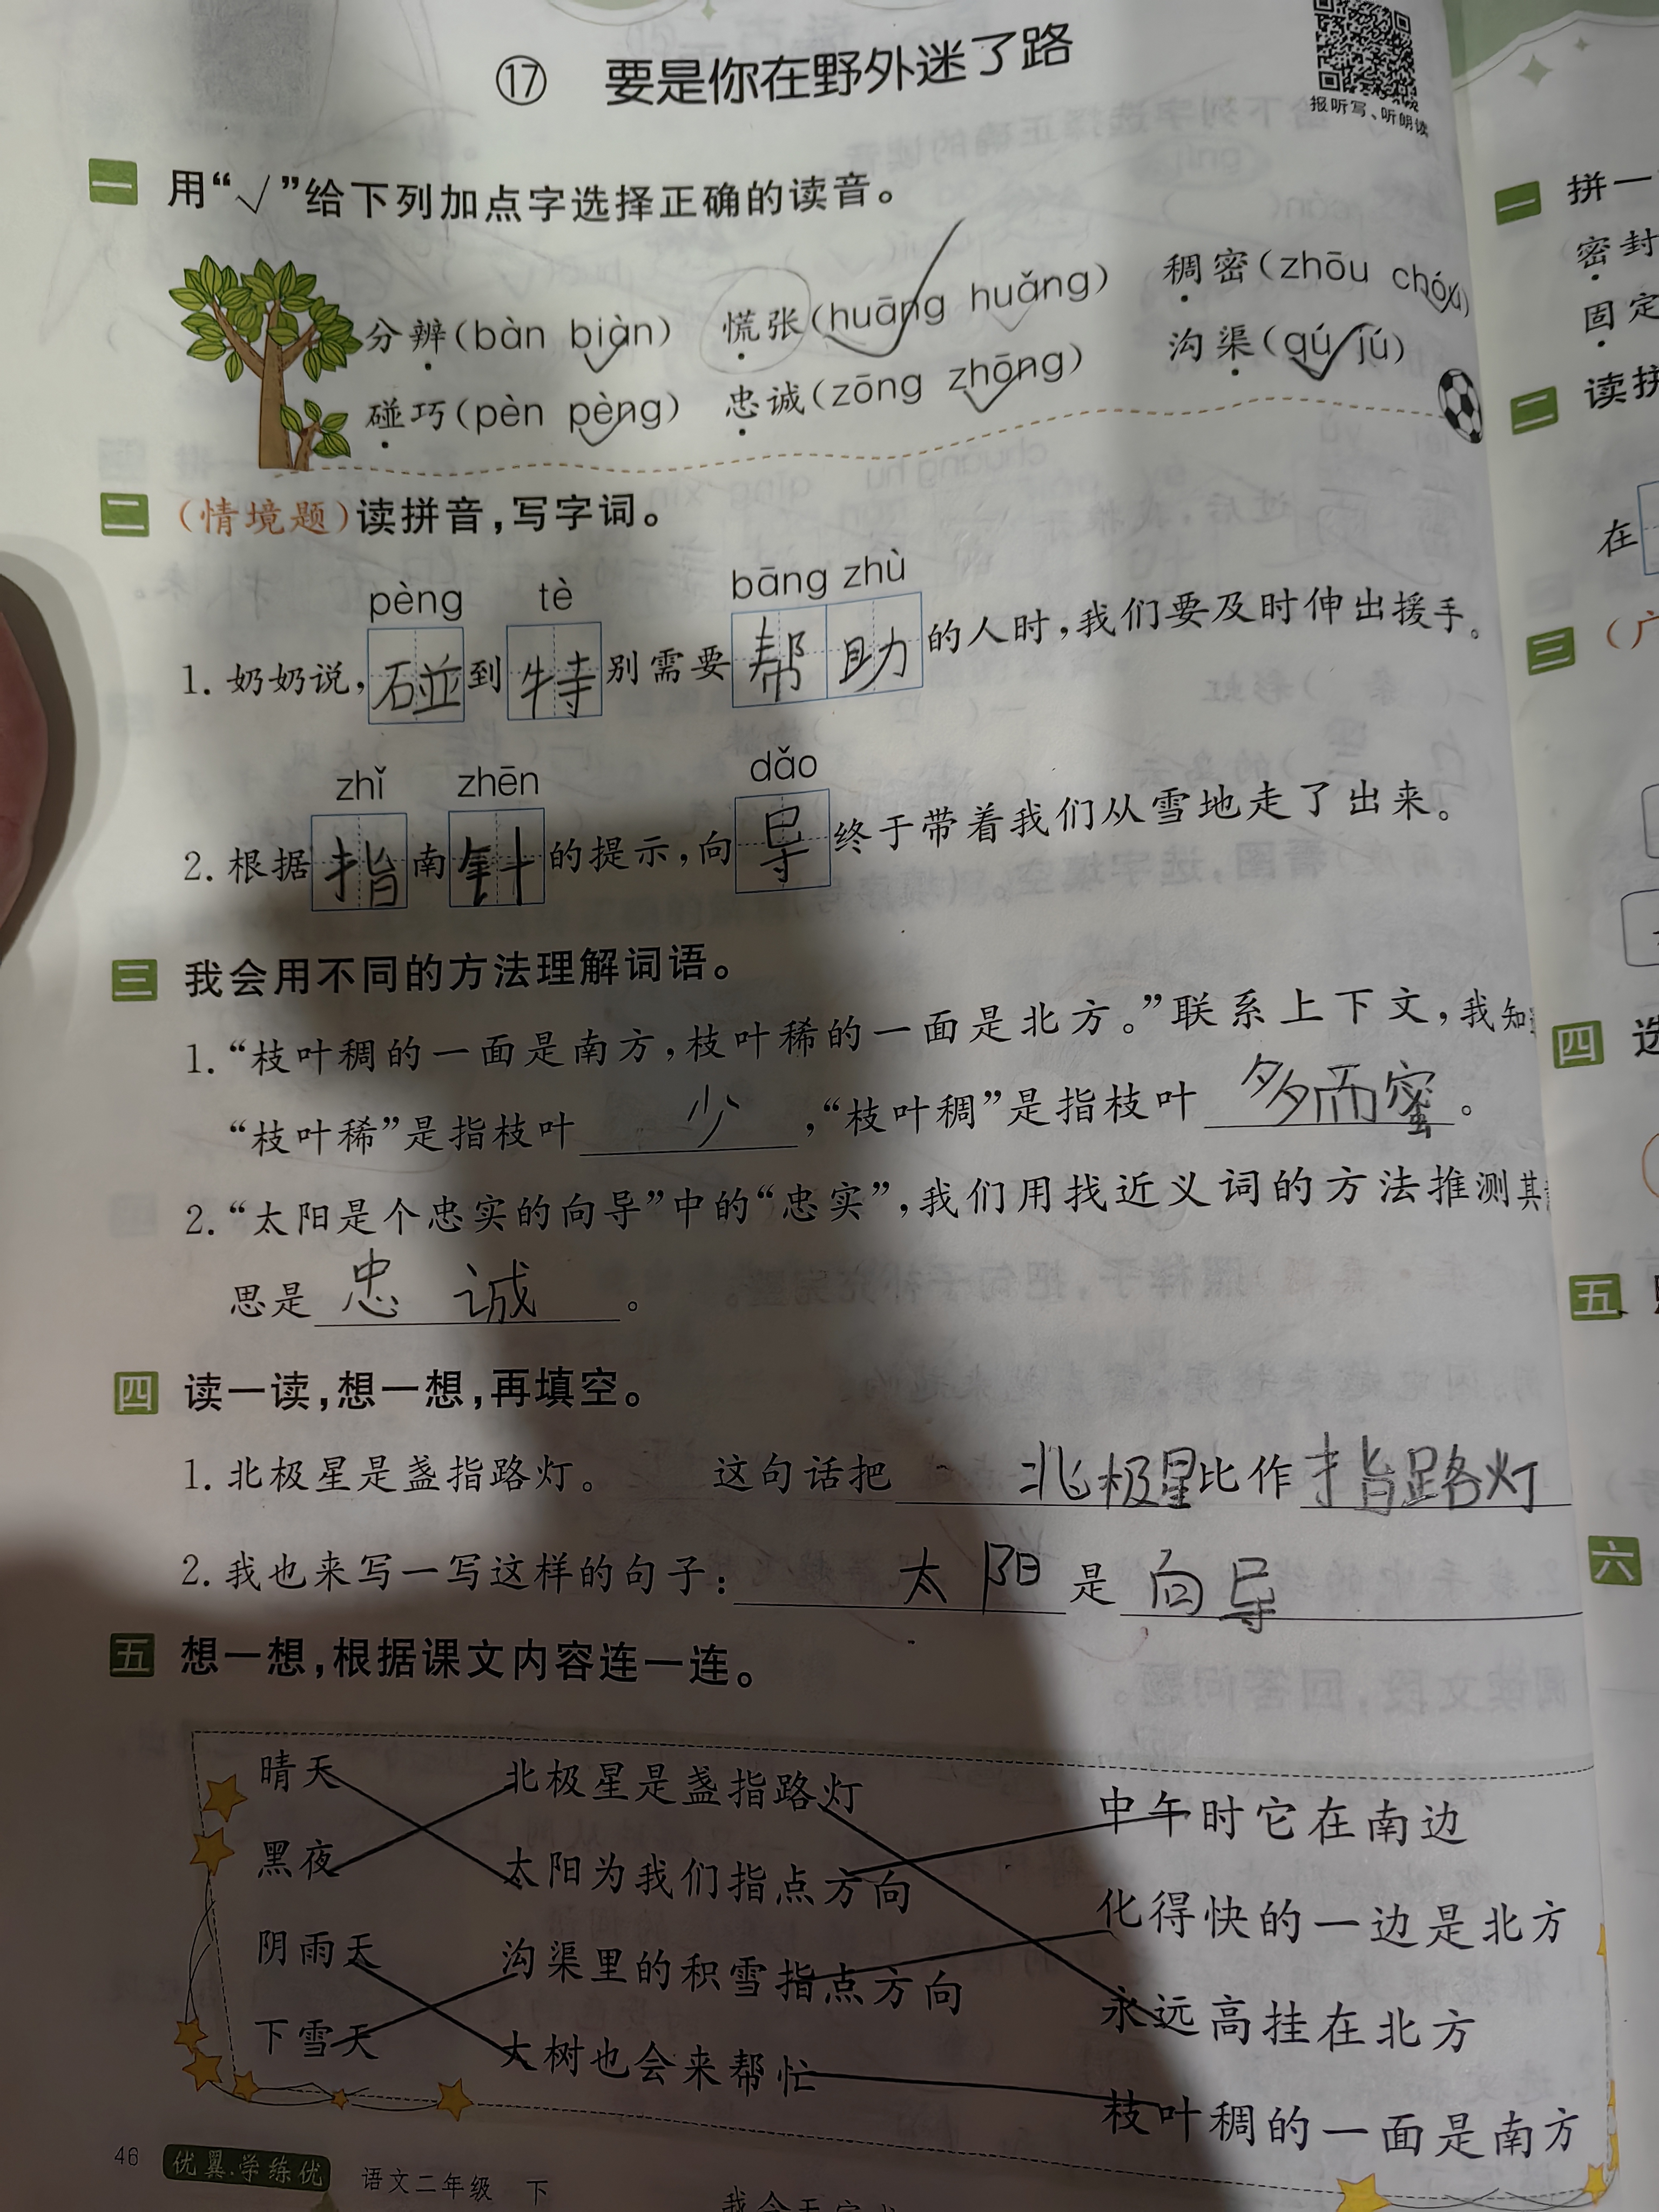 ⑰ 要是你在野外迷了路
报听写、听朗读
一 用“√”给下列加点字选择正确的读音。
分辨(bàn biàn) 慌张(huāng huǎng) 稠密(zhōu chóu)
碰巧(pèn pèng) 忠诚(zōng zhōng) 沟渠(qú jú)
二 (情境题)读拼音,写字词。
pèng tè bāng zhù
1. 奶奶说,碰到特别需要帮助的人时,我们要及时伸出援手。
zhǐ zhēn dǎo
2. 根据指南针的提示,向导终于带着我们从雪地走了出来。
三 我会用不同的方法理解词语。
1. “枝叶稠的一面是南方,枝叶稀的一面是北方。”联系上下文,我知
“枝叶稀”是指枝叶 少 ,“枝叶稠”是指枝叶 多而蜜 。
2. “太阳是个忠实的向导”中的“忠实”,我们用找近义词的方法推测其
思是 忠诚 。
四 读一读,想一想,再填空。
1. 北极星是盏指路灯。 这句话把 北极星 比作 指路灯
2. 我也来写一写这样的句子: 太阳 是 向导
五 想一想,根据课文内容连一连。
晴天 北极星是盏指路灯 中午时它在南边
黑夜 太阳为我们指点方向 化得快的一边是北方
阴雨天 沟渠里的积雪指点方向 永远高挂在北方
下雪天 大树也会来帮忙 枝叶稠的一面是南方
46 优翼·学练优 语文二年级 下
一 拼一
密封
固定
二 读拼
在
三
四 选
五
六